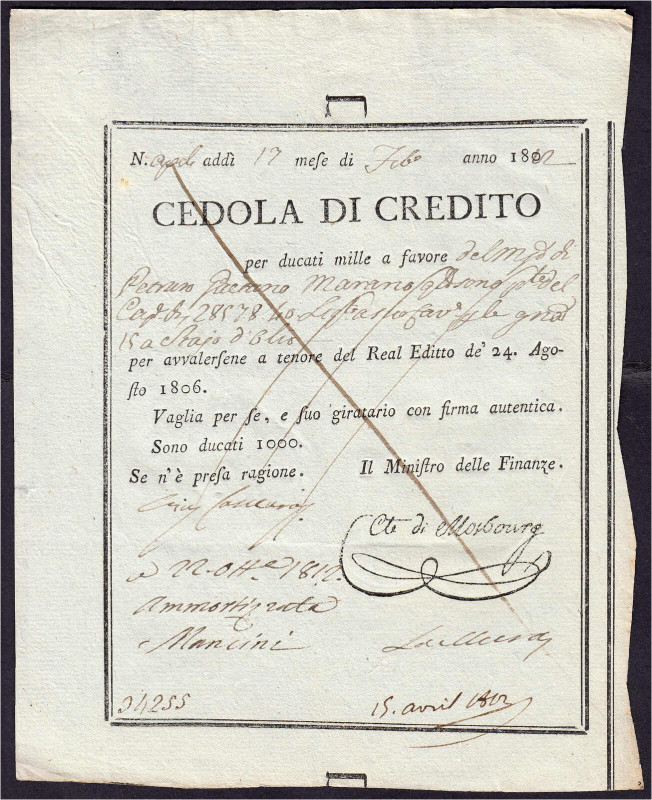 N.apoli addì 17 meſe di Feb.o anno 1812
CEDOLA DI CREDITO
per ducati mille a favore del
Marano del
28578:40
15 a Stajo d'Olio
per avvalerſene a tenore del Real Editto de' 24. Ago-
ſto 1806.
Vaglia per ſe, e ſuo giratario con firma autentica.
Sono ducati 1000.
Se n'è preſa ragione. Il Miniſtro delle Finanze.
Cte di Mosbourg
a 22. Ott.e 1812.
Ammortizzata
Mancini
34255
15. avril 1812